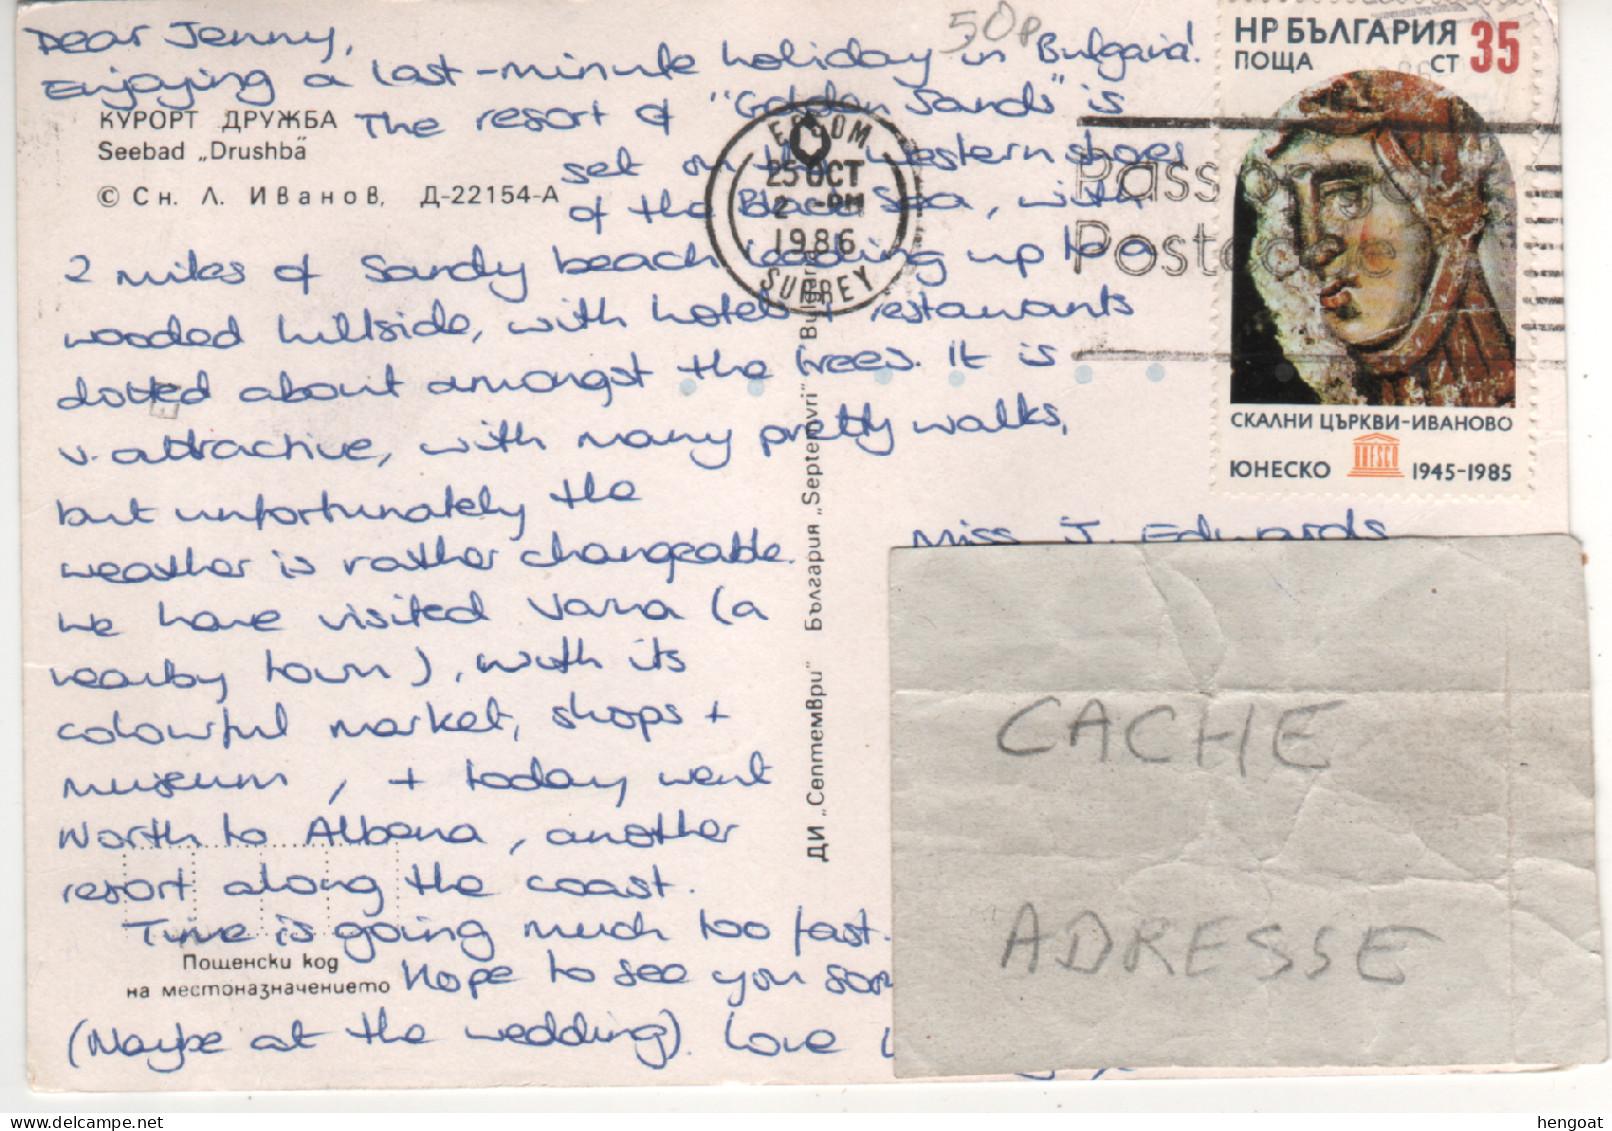 Dear Jenny,
50p
Enjoying a last-minute holiday in Bulgaria!
The resort of "Golden Sands" is
set on the western shores
of the Black Sea, with
2 miles of sandy beach leading up to a
wooded hillside, with hotels + restaurants
dotted about amongst the trees. It is
v. attractive, with many pretty walks,
but unfortunately the
weather is rather changeable.
We have visited Varna (a
nearby town), with its
colourful market, shops +
museum, + today went
North to Albena, another
resort along the coast.
Time is going much too fast.
Hope to see you
(Maybe at the wedding). Love
КУРОРТ ДРУЖБА
Seebad „Drushba"
© Сн. Л. Иванов, Д-22154-А
Пощенски код
на местоназначението
ДИ „Септември" България „Septemvri" Bulgaria
EPSOM
25 OCT
2 -PM
1986
SURREY
Passport
Postcode
НР БЪЛГАРИЯ 35
ПОЩА СТ
СКАЛНИ ЦЪРКВИ-ИВАНОВО
ЮНЕСКО UNESCO 1945-1985
Miss J. Edwards
CACHE
ADRESSE
hengoat